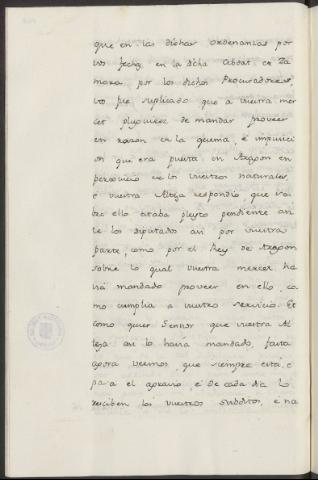 que en las dichas ordenanzas por
vos fechas en la dicha Cibdat de Za
mora por los dichos Procuradores,
vos fue suplicado que a vuestra mer
cet pluguiese de mandar proveer
en razon de la quema, e impusicion
que era puesta en Aragon en
perjuicio de los vuestros naturales,
e vuestra Alteza respondio, que so
bre ello estaba pleyto pendiente an
te los diputados asi por vuestra
parte, como por el Rey de Aragon
sobre lo qual vuestra merced ha
via mandado proveer en ello, co
mo cumplia a vuestro servicio. Et
como quier Sennor que vuestra Al
teza asi lo havia mandado, fasta
agora veemos, que siempre está, e
pasa el agravio, e de cada dia lo
resciben los vuestros subditos, e na